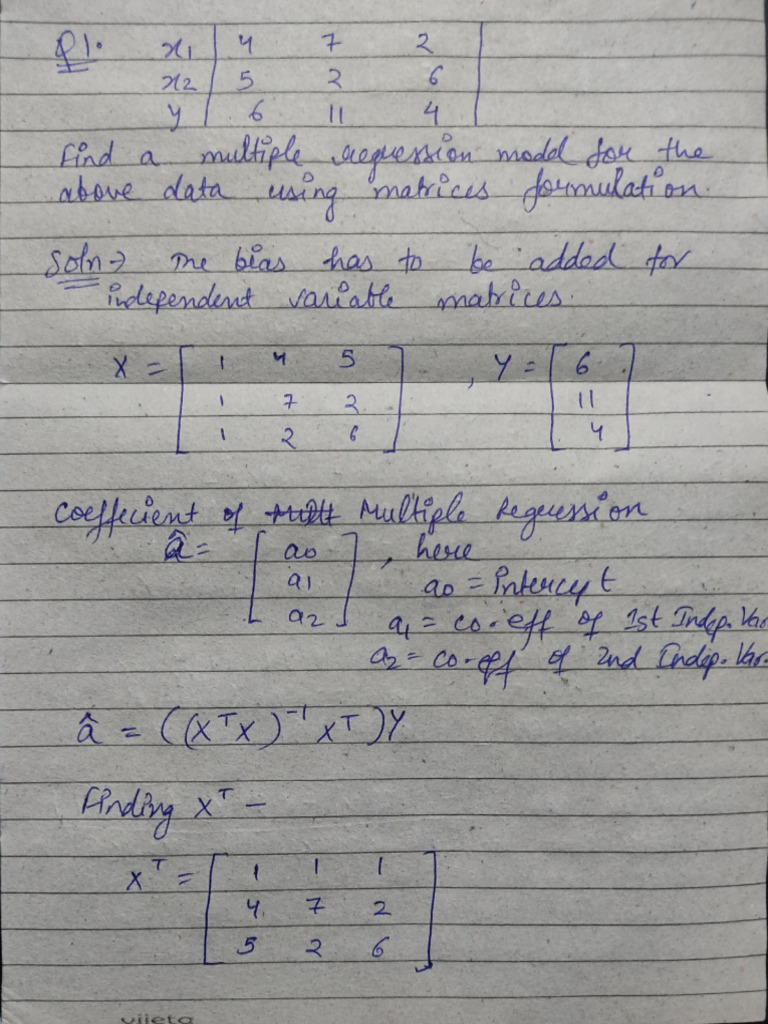 Q1. x1 | 4 7 2
x2 | 5 2 6
y | 6 11 4
Find a multiple regression model for the
above data using matrices formulation.
Soln → The bias has to be added for
independent variable matrices.
X = [ 1 4 5 ] , Y = [ 6 ]
[ 1 7 2 ] [ 11 ]
[ 1 2 6 ] [ 4 ]
Coefficient of Multiple Regression
â = [ a0 ] , here
[ a1 ] a0 = Intercept
[ a2 ] a1 = co-eff of 1st Indep. Var
a2 = co-eff of 2nd Indep. Var.
â = ((XᵀX)⁻¹ Xᵀ)Y
Finding Xᵀ –
Xᵀ = [ 1 1 1 ]
[ 4 7 2 ]
[ 5 2 6 ]